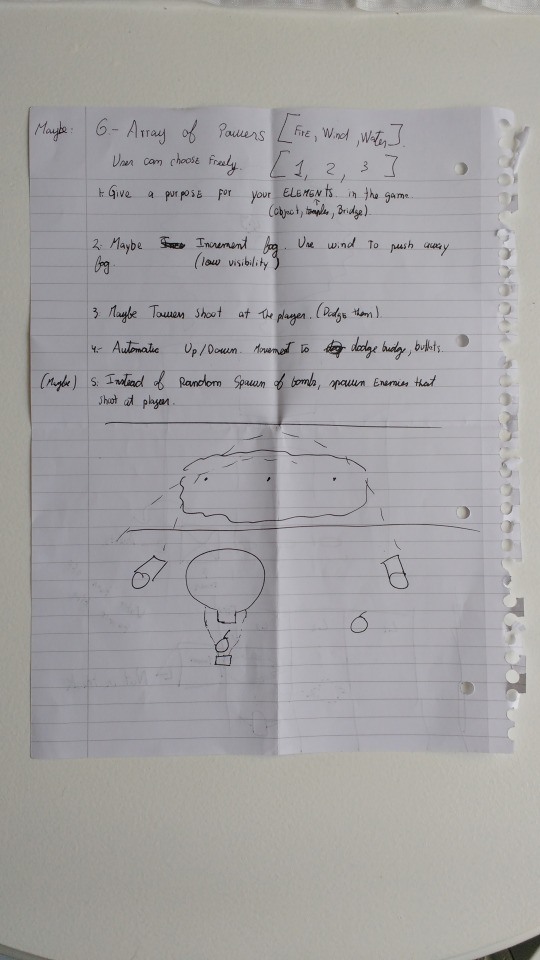 Maybe: 6.- Array of Powers [Fire, Wind, Water].
User can choose freely. [1, 2, 3]
1. Give a purpose for your ELEMENTS in the game.
(object, temples, Bridge).
2. Maybe Increment fog. Use wind to push away
fog. (low visibility)
3 Maybe Towers shoot at the player. (Dodge them)
4.- Automatic Up/Down. Movement to dodge bridge, bullets.
(Maybe) 5. Instead of Random Spawn of bombs, spawn Enemies that
shoot at player.